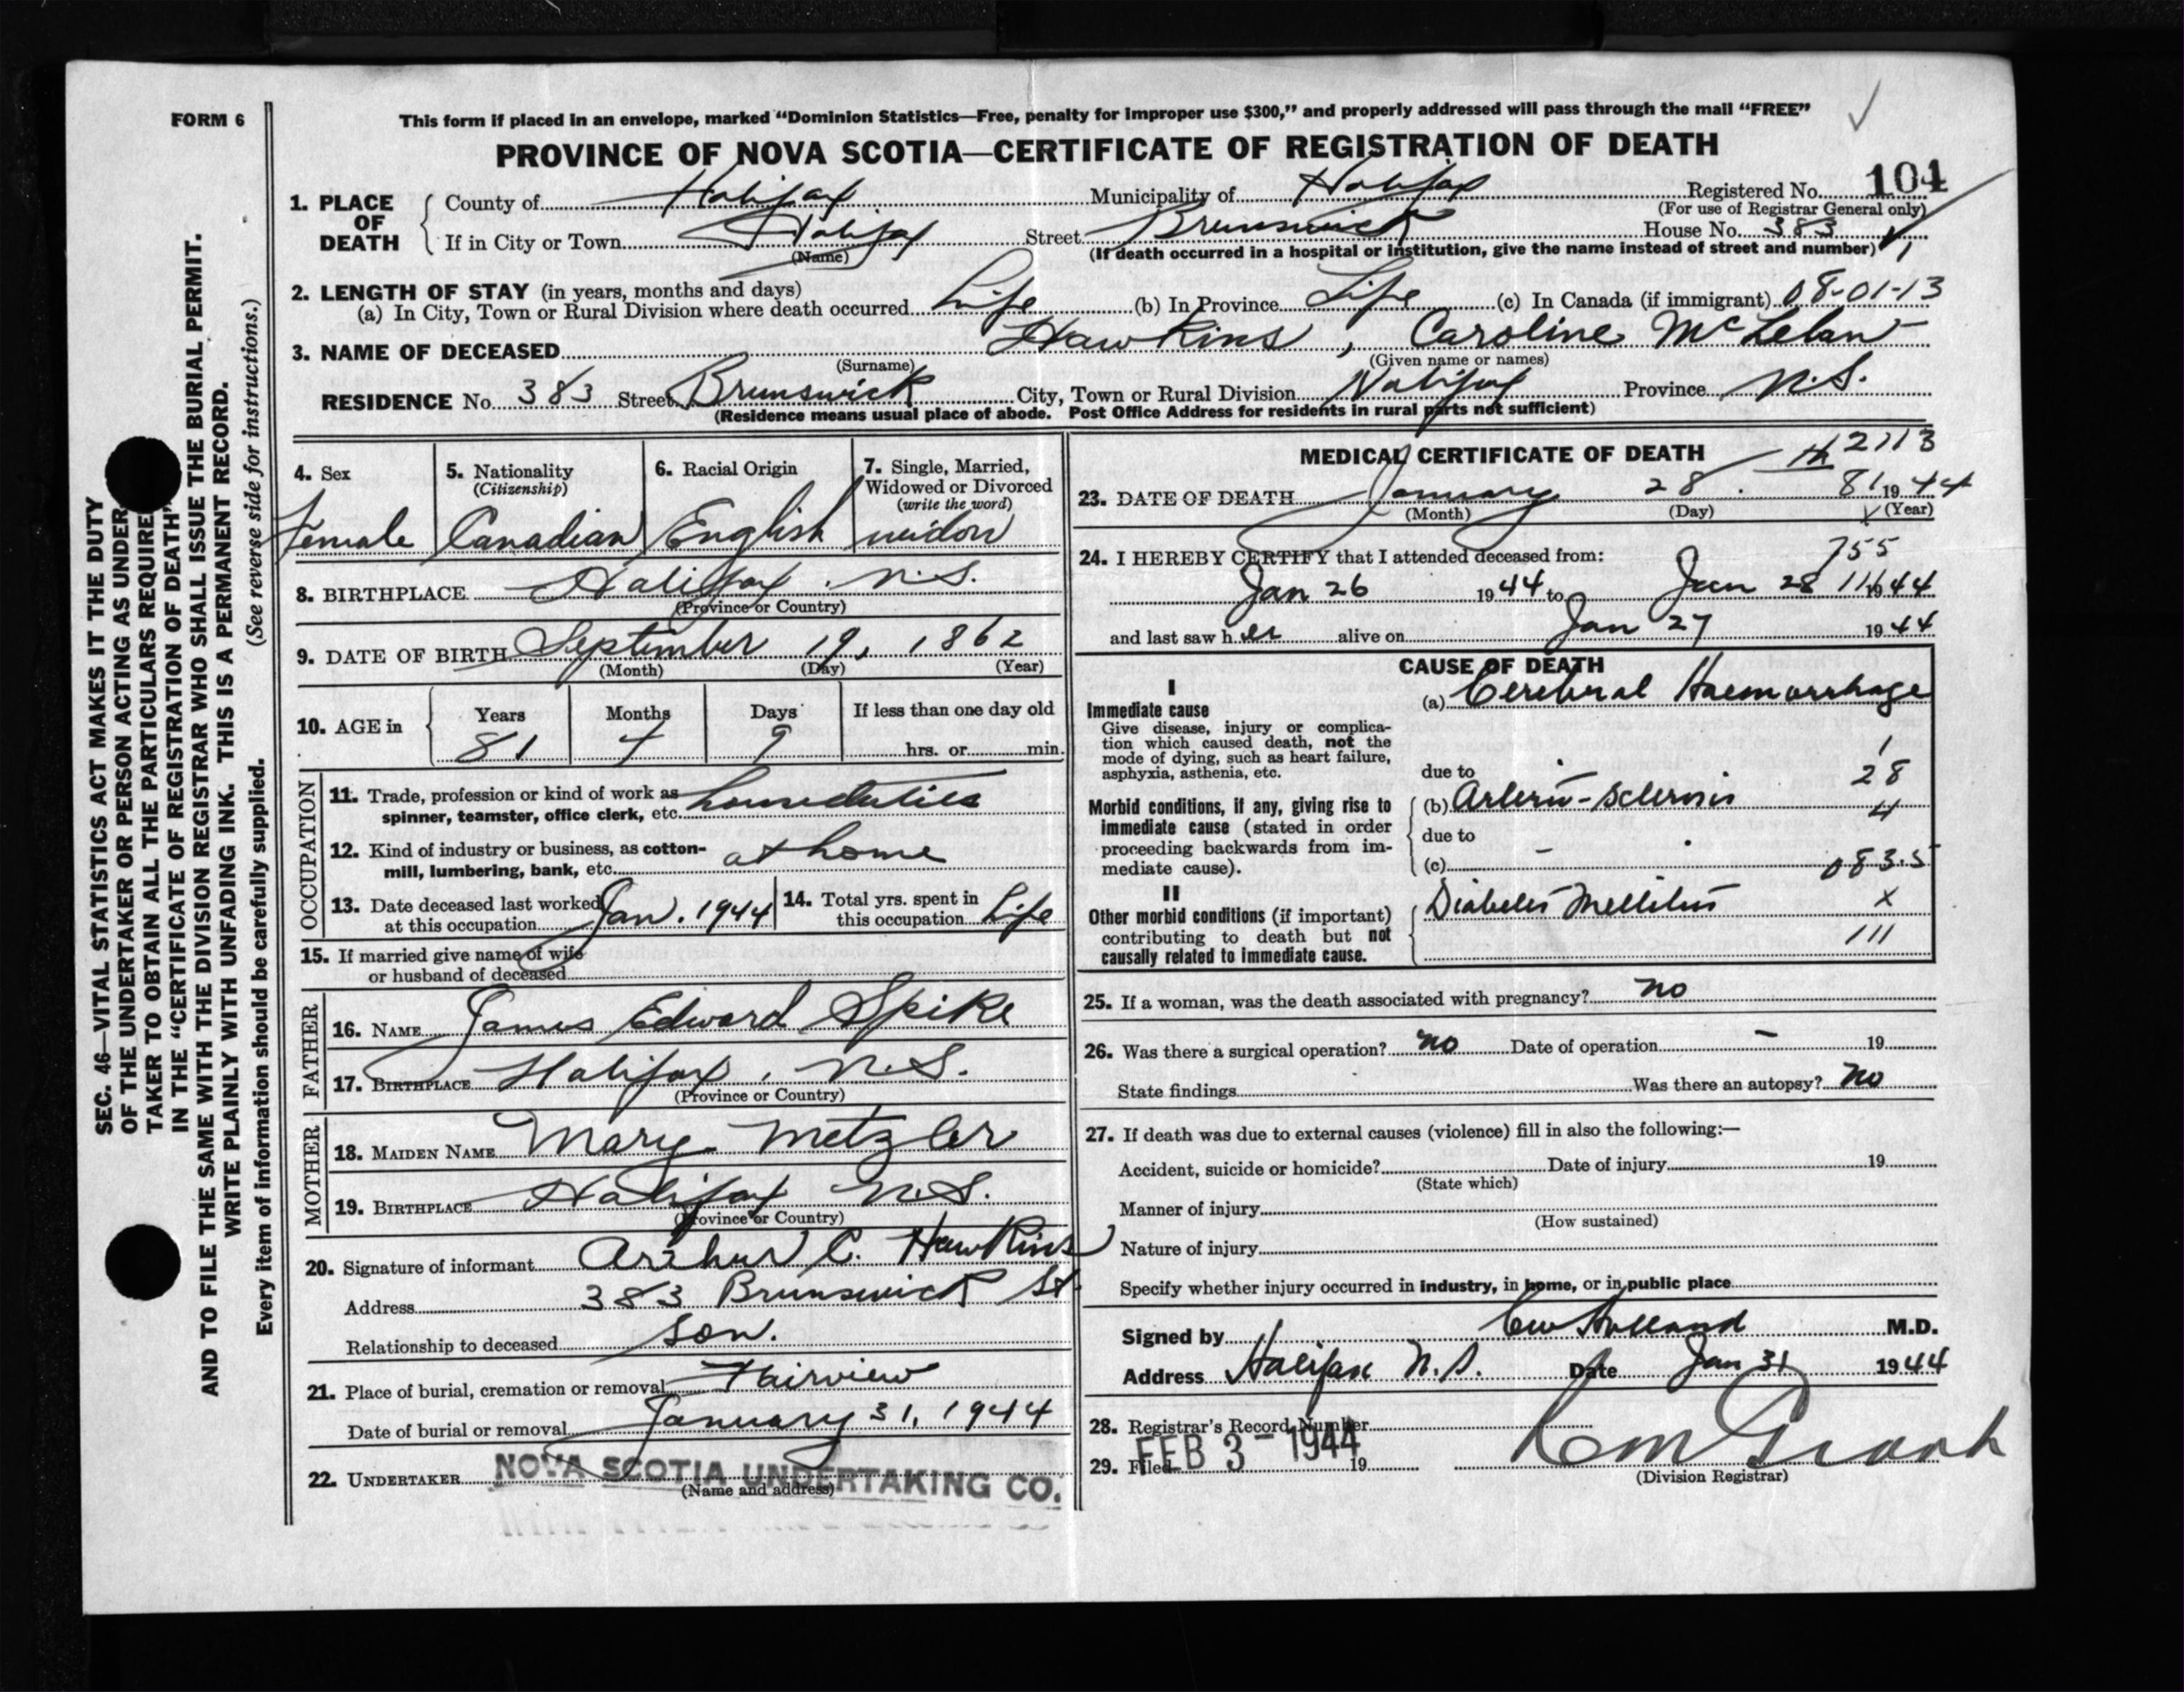 FORM 6
This form if placed in an envelope, marked "Dominion Statistics—Free, penalty for improper use $300," and properly addressed will pass through the mail "FREE"
PROVINCE OF NOVA SCOTIA—CERTIFICATE OF REGISTRATION OF DEATH
1. PLACE OF DEATH County of Halifax Municipality of Halifax Registered No. 104
(For use of Registrar General only)
If in City or Town Halifax Street Brunswick House No. 383
(Name) (If death occurred in a hospital or institution, give the name instead of street and number)
2. LENGTH OF STAY (in years, months and days)
(a) In City, Town or Rural Division where death occurred Life (b) In Province Life (c) In Canada (if immigrant) 08-01-13
3. NAME OF DECEASED Hawkins, Caroline McLelan
(Surname) (Given name or names)
RESIDENCE No. 383 Street Brunswick City, Town or Rural Division Halifax Province N.S.
(Residence means usual place of abode. Post Office Address for residents in rural parts not sufficient)
4. Sex 5. Nationality (Citizenship) 6. Racial Origin 7. Single, Married, Widowed or Divorced (write the word)
Female Canadian English widow
8. BIRTHPLACE Halifax. N.S.
(Province or Country)
9. DATE OF BIRTH September 19, 1862
(Month) (Day) (Year)
10. AGE in Years Months Days If less than one day old
81 4 9 hrs. or min.
OCCUPATION
11. Trade, profession or kind of work as
spinner, teamster, office clerk, etc. houseduties
12. Kind of industry or business, as cotton-
mill, lumbering, bank, etc. at home
13. Date deceased last worked at this occupation Jan. 1944 14. Total yrs. spent in this occupation Life
15. If married give name of wife
or husband of deceased
FATHER
16. NAME James Edward Spike
17. BIRTHPLACE Halifax, N.S.
(Province or Country)
MOTHER
18. MAIDEN NAME Mary Metzler
19. BIRTHPLACE Halifax N.S.
(Province or Country)
20. Signature of informant Arthur C. Hawkins
Address 383 Brunswick St.
Relationship to deceased son.
21. Place of burial, cremation or removal Fairview
Date of burial or removal January 31, 1944
22. UNDERTAKER NOVA SCOTIA UNDERTAKING CO.
(Name and address)
MEDICAL CERTIFICATE OF DEATH 2113
23. DATE OF DEATH January 28. 81 1944
(Month) (Day) (Year)
24. I HEREBY CERTIFY that I attended deceased from: 755
Jan 26 1944 to Jan 28 11 1944
and last saw her alive on Jan 27 1944
CAUSE OF DEATH
I
Immediate cause (a) Cerebral Haemorrhage
Give disease, injury or complica-
tion which caused death, not the
mode of dying, such as heart failure, 1
asphyxia, asthenia, etc. due to 28
Morbid conditions, if any, giving rise to (b) Arterio-sclerosis
immediate cause (stated in order 4
proceeding backwards from im- due to
mediate cause). (c) - 083.5
II
Other morbid conditions (if important) Diabetes Mellitus x
contributing to death but not 111
causally related to immediate cause.
25. If a woman, was the death associated with pregnancy? no
26. Was there a surgical operation? no Date of operation - 19
State findings Was there an autopsy? No
27. If death was due to external causes (violence) fill in also the following:—
Accident, suicide or homicide? Date of injury 19
(State which)
Manner of injury
(How sustained)
Nature of injury
Specify whether injury occurred in industry, in home, or in public place
Signed by M.D.
Address Halifax N.S. Date Jan 31 1944
28. Registrar's Record Number
29. Filed FEB 3 - 1944 19
(Division Registrar)
SEC. 46—VITAL STATISTICS ACT MAKES IT THE DUTY
OF THE UNDERTAKER OR PERSON ACTING AS UNDER
TAKER TO OBTAIN ALL THE PARTICULARS REQUIRE
IN THE "CERTIFICATE OF REGISTRATION OF DEATH"
AND TO FILE THE SAME WITH THE DIVISION REGISTRAR WHO SHALL ISSUE THE BURIAL PERMIT.
WRITE PLAINLY WITH UNFADING INK. THIS IS A PERMANENT RECORD.
Every item of information should be carefully supplied. (See reverse side for instructions.)